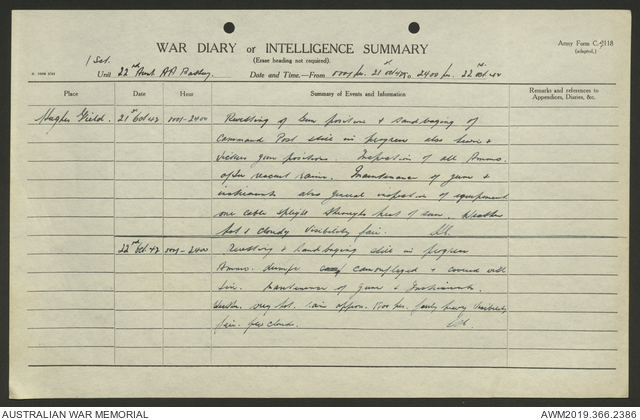 WAR DIARY or INTELLIGENCE SUMMARY
(Erase heading not required).
Army Form C.2118
(adapted.)
1 Sect.
Unit 22nd Heavy AA Battery. Date and Time—From 0001 hr. 21st Oct 42 to 2400 hr. 22nd Oct 42
Place Date Hour Summary of Events and Information Remarks and references to Appendices, Diaries, &c.
Hughes Field. 21st Oct 42 0001-2400 Revetting of Gun positions & Sandbagging of
Command Post still in progress also
Vickers gun positions. Inspection of all Ammo.
after recent rains. Maintenance of guns &
instruments also general inspection of equipment
one cable through heat of sun. Weather
hot & cloudy Visibility fair.
22nd Oct 42 0001-2400 Revetting & Sandbagging still in progress
Ammo. dumps camouflaged & covered with
tin. Maintenance of Guns & Instruments.
Weather. very hot. rain approx. 1500 hrs. fairly heavy Visibility
fair.
AUSTRALIAN WAR MEMORIAL
AWM2019.366.2386